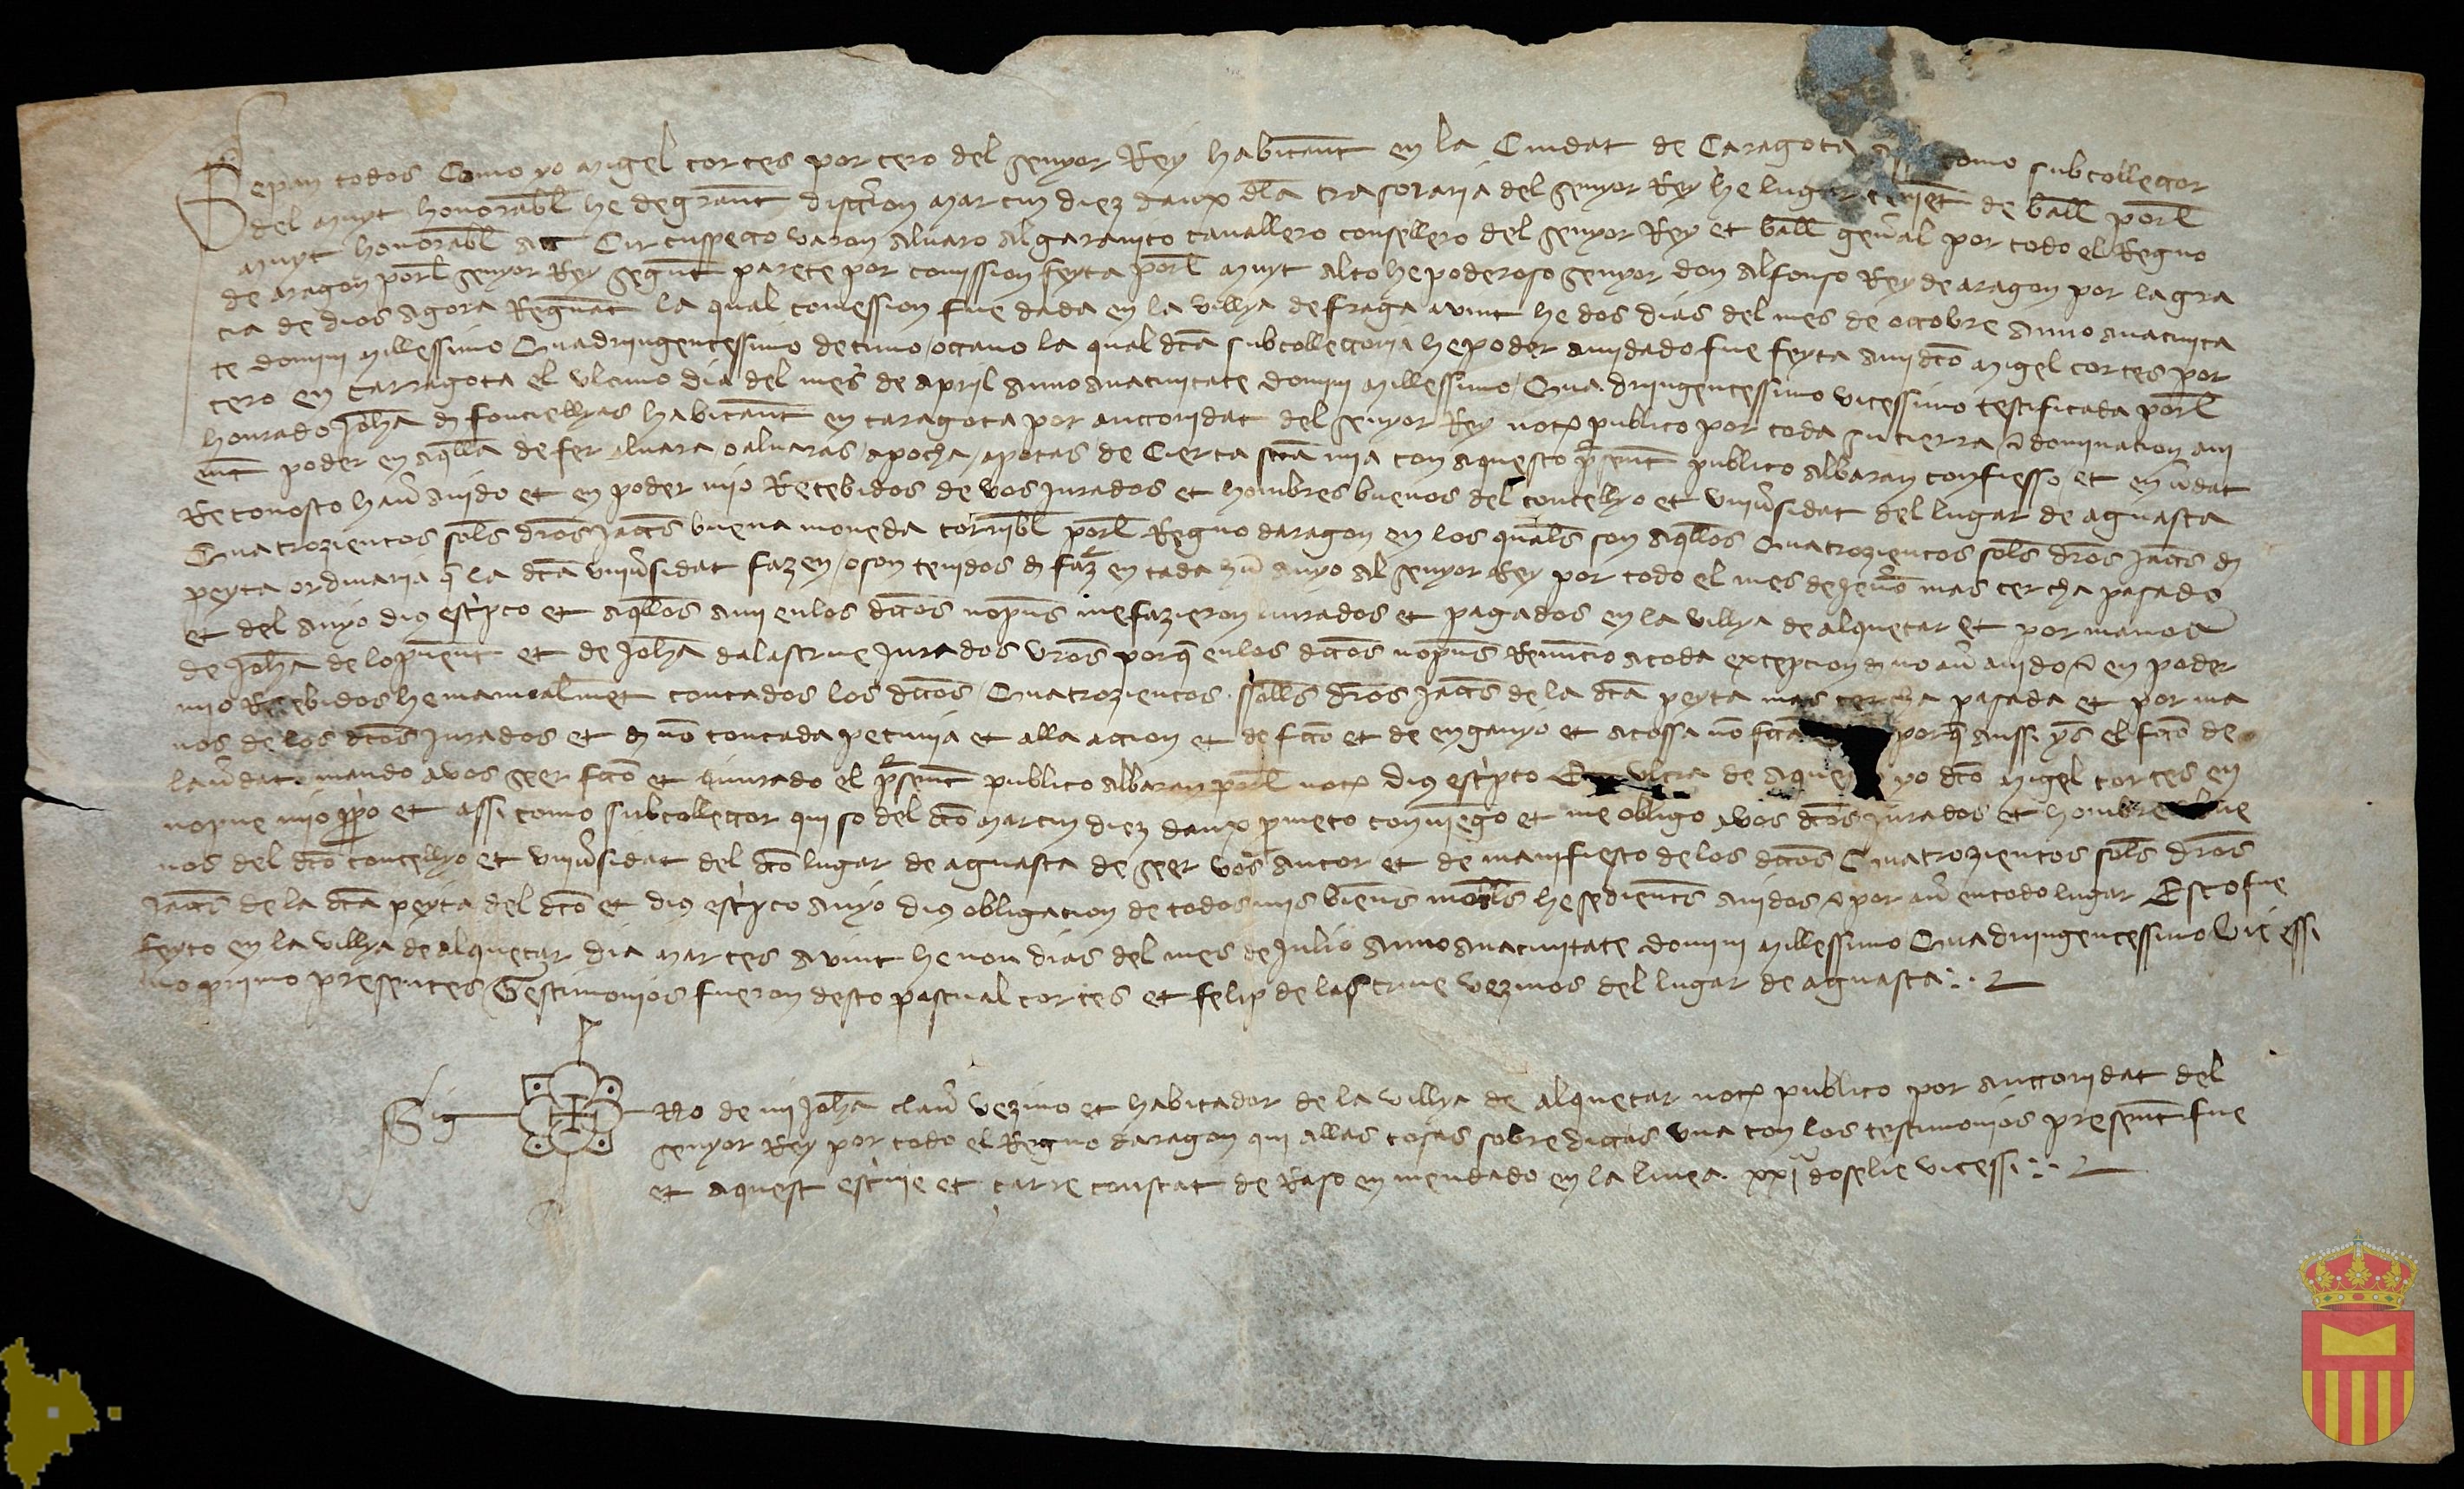 Sepan todos Como yo Migel cortes portero del senyor Rey habitant en la Ciudat de Caragoça como subcollector
del muyt honorabl he de grant discrecion Martin diez daux dla trasoraria del senyor Rey he lugar tenient de ball porl
muyt honorabl Circuspecto varon Alvaro Algaravito cavallero consellero del senyor Rey et ball general por todo el Regno
de aragon porl senyor Rey segunt pareçe por comission feyta porl muyt alto he poderoso senyor don Alfonso Rey de aragon por la gra
cia de dios agora Regnat la qual comession fue dada en la villya de fraga a vint he dos dias del mes de octobre Anno anativita
te domini Millessimo Quadringentessimo decimo octavo la qual dcã subcollectoria he poder ami dado fue feyta ami dcõ Migel cortes por
tero en Carragoça el ultimo dia del mes de april Anno anativitate domini Millessimo Quadringentessimo vicessimo testificada porl
honrado Johã d fonciellyas habitant en Caragoça por auctoridat del senyor Rey not publico por toda su tierra dominacion avi
ent poder en aqlla de fer alvara o alvaras apocha apocas de Cierta sciencia mia con aquesto present publico albaran confiesso et en vdat
Reconosco haver avido et en poder mio Recebidos de vos Jurados et hombres buenos del concellyo et univsidat del lugar de aguasca
Quatrozientos sols dros jaccs buena moneda corribl porl Regno daragon en los quals son aqllos Quatrozientos sols dros jaccs d
peyta ordinaria q la dcã univsidat fazen o son tenidos d faz en cada hũ anyo al senyor Rey por todo el mes de Jenero mas cercha pasado
et del anyo dius escpto et aqllos ami en los dccos nopns me fazieron livrados et pagados en la villya de alqueçar et por manos
de Johã de lo puent et de Johã dalastrue Jurados vros porq en los dccos nopns Renuncio a toda excepcion d no aver avido en poder
mio Recebidos he manualment contados los dccos Quatrozientos solls dros jaccs de la dcã peyta mas cercha pasada et por ma
nos de los dccos Jurados et d no contada pecunia et alla accion et de fcco et de enganyo et a cossa no fcca porq assi ys el fcco de
la vdat mando a vos seer fcco et livrado el present publico albaran porl not dius escpto ultra de aquesto yo dcõ Migel cortes en
nopne mio ppo et assi como subcollector qui so del dcõ Martin diez daux pmeto conviengo et me obligo a vos dccos Jurados et hombres bue
nos del dcõ concellyo et univsidat del dcõ lugar de aguasca de seer vos auctor et de manifiesto de los dccos Quatrozientos sols dros
jaccs de la dcã peyta del dcõ et dius escpto anyo dius obligacion de todos mis biens mobls he sedients avidos por aver en todo lugar Esto fue
feyto en la villya de alqueçar dia Martes a vint he nou dias del mes de Julio Anno anativitate domini Millessimo Quadringentessimo Vicessi
mo primo presentes Testimonios fueron desto pascual cortes et felip de lastrue vezinos del lugar de aguasca
Sig no de mi Johã claver vezino et habitador de la villya de alqueçar not publico por auctoridat del
senyor Rey por todo el Regno daragon qui allas cosas sobredictas una con los testimonios present fue
et aquest escrivie et carre constat de Raso enmendado en la linea xxi do se lie vicessi